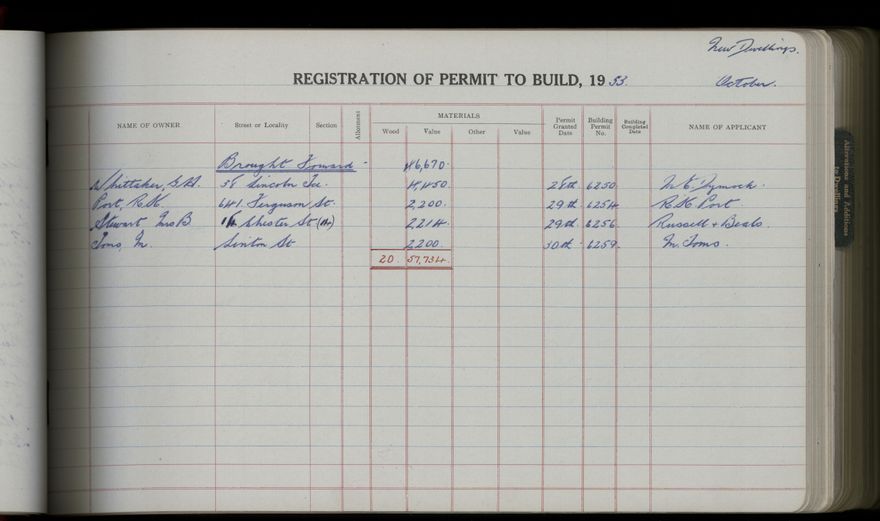 New Dwellings.
REGISTRATION OF PERMIT TO BUILD, 1953. October.
NAME OF OWNER Street or Locality Section Allotment MATERIALS Wood Value Other Value Permit Granted Date Building Permit No. Building Completed Date NAME OF APPLICANT
Brought Forward - 46,670.
Whittaker, 58 Lincoln Tce. 4,450. 28th 6250. Dymock.
Port, R K 641. Ferguson St. 2,200. 29th 6254. R K Port.
Stewart Mrs B Chester St 2214. 29th 6256. Russell + Beals.
Toms, M. Linton St 2200. 30th. 6259. M. Toms.
20. 57,734.
Alterations and Additions to Dwellings